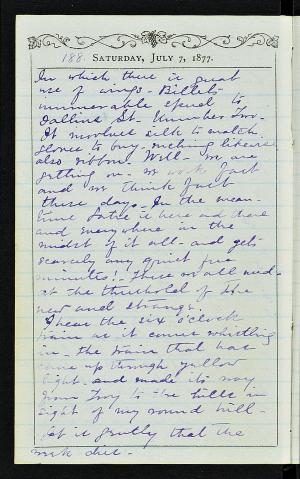 188. SATURDAY, JULY 7, 1877.
In which there is great
use of wings - Billets
innumerable
St. Number Two.
It involves silk to match.
Gloves to buy - ruching likewise
also ribbon. Well - we are
getting on - we work fast
and we think fast
these days. In the mean-
time Katie is here and there
and everywhere in the
midst of it all - and gets
scarcely any quiet five
minutes! - There we all
at the threshold of the
new and strange.
I hear the six o'clock
train as it comes whistling
in - the train that has
come up through yellow
light - and made its way
from Troy to the hills in
sight of my round hill -
Let it gently that the
week dies -